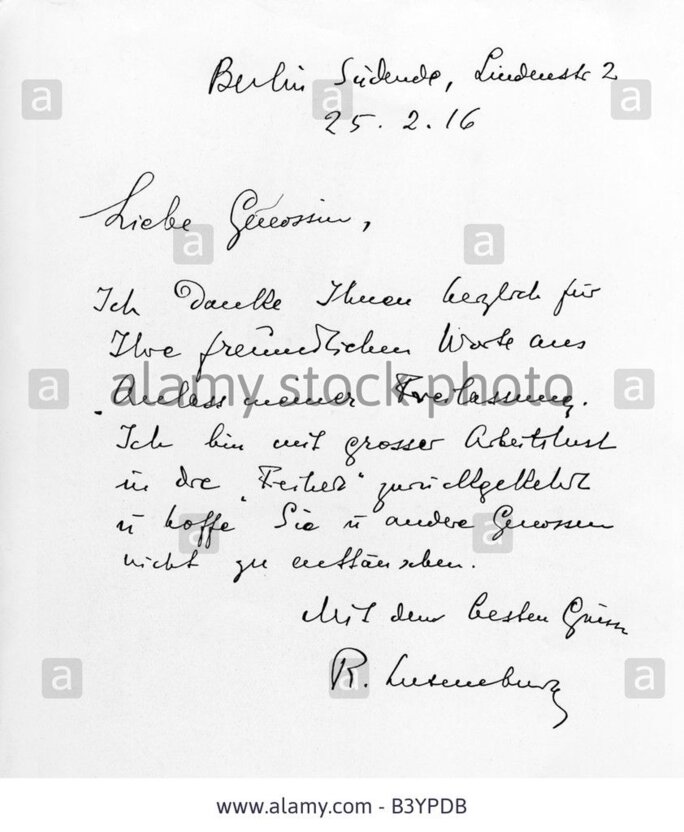 Berlin Südende, Lindenstr 2
25. 2. 16
Liebe Genossin,
Ich danke Ihnen herzlich für
Ihre freundlichen Worte aus
Anlass meiner Freilassung.
Ich bin mit grosser Arbeitslust
in die „Freiheit“ zurückgekehrt
u hoffe Sie u andere Genossen
nicht zu enttäuschen.
Mit den besten Grüssen
R. Luxemburg
alamy stock photo
www.alamy.com - B3YPDB